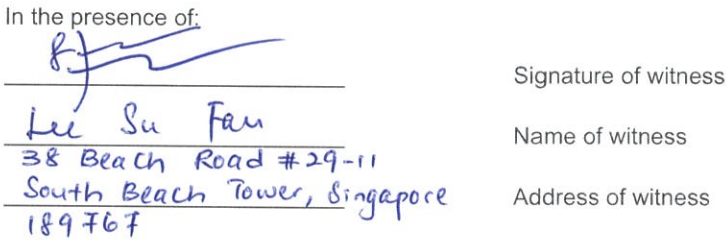 In the presence of:
Signature of witness
Lee Su Fan
Name of witness
38 Beach Road #29-11
South Beach Tower, Singapore
Address of witness
189767